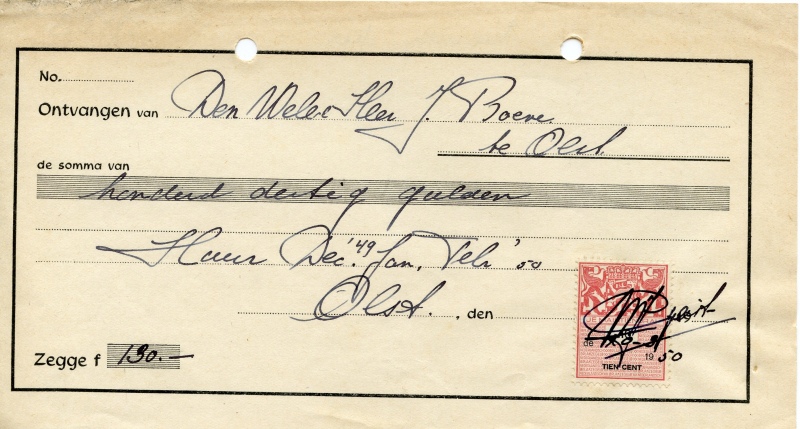 No.
Ontvangen van Den Weled. Heer J. Boeve
te Olst.
de somma van
honderd dertig gulden
Huur Dec. '49 Jan. Feb '50
Olst. , den
de 19 50
Zegge f 130.—
TIEN CENT